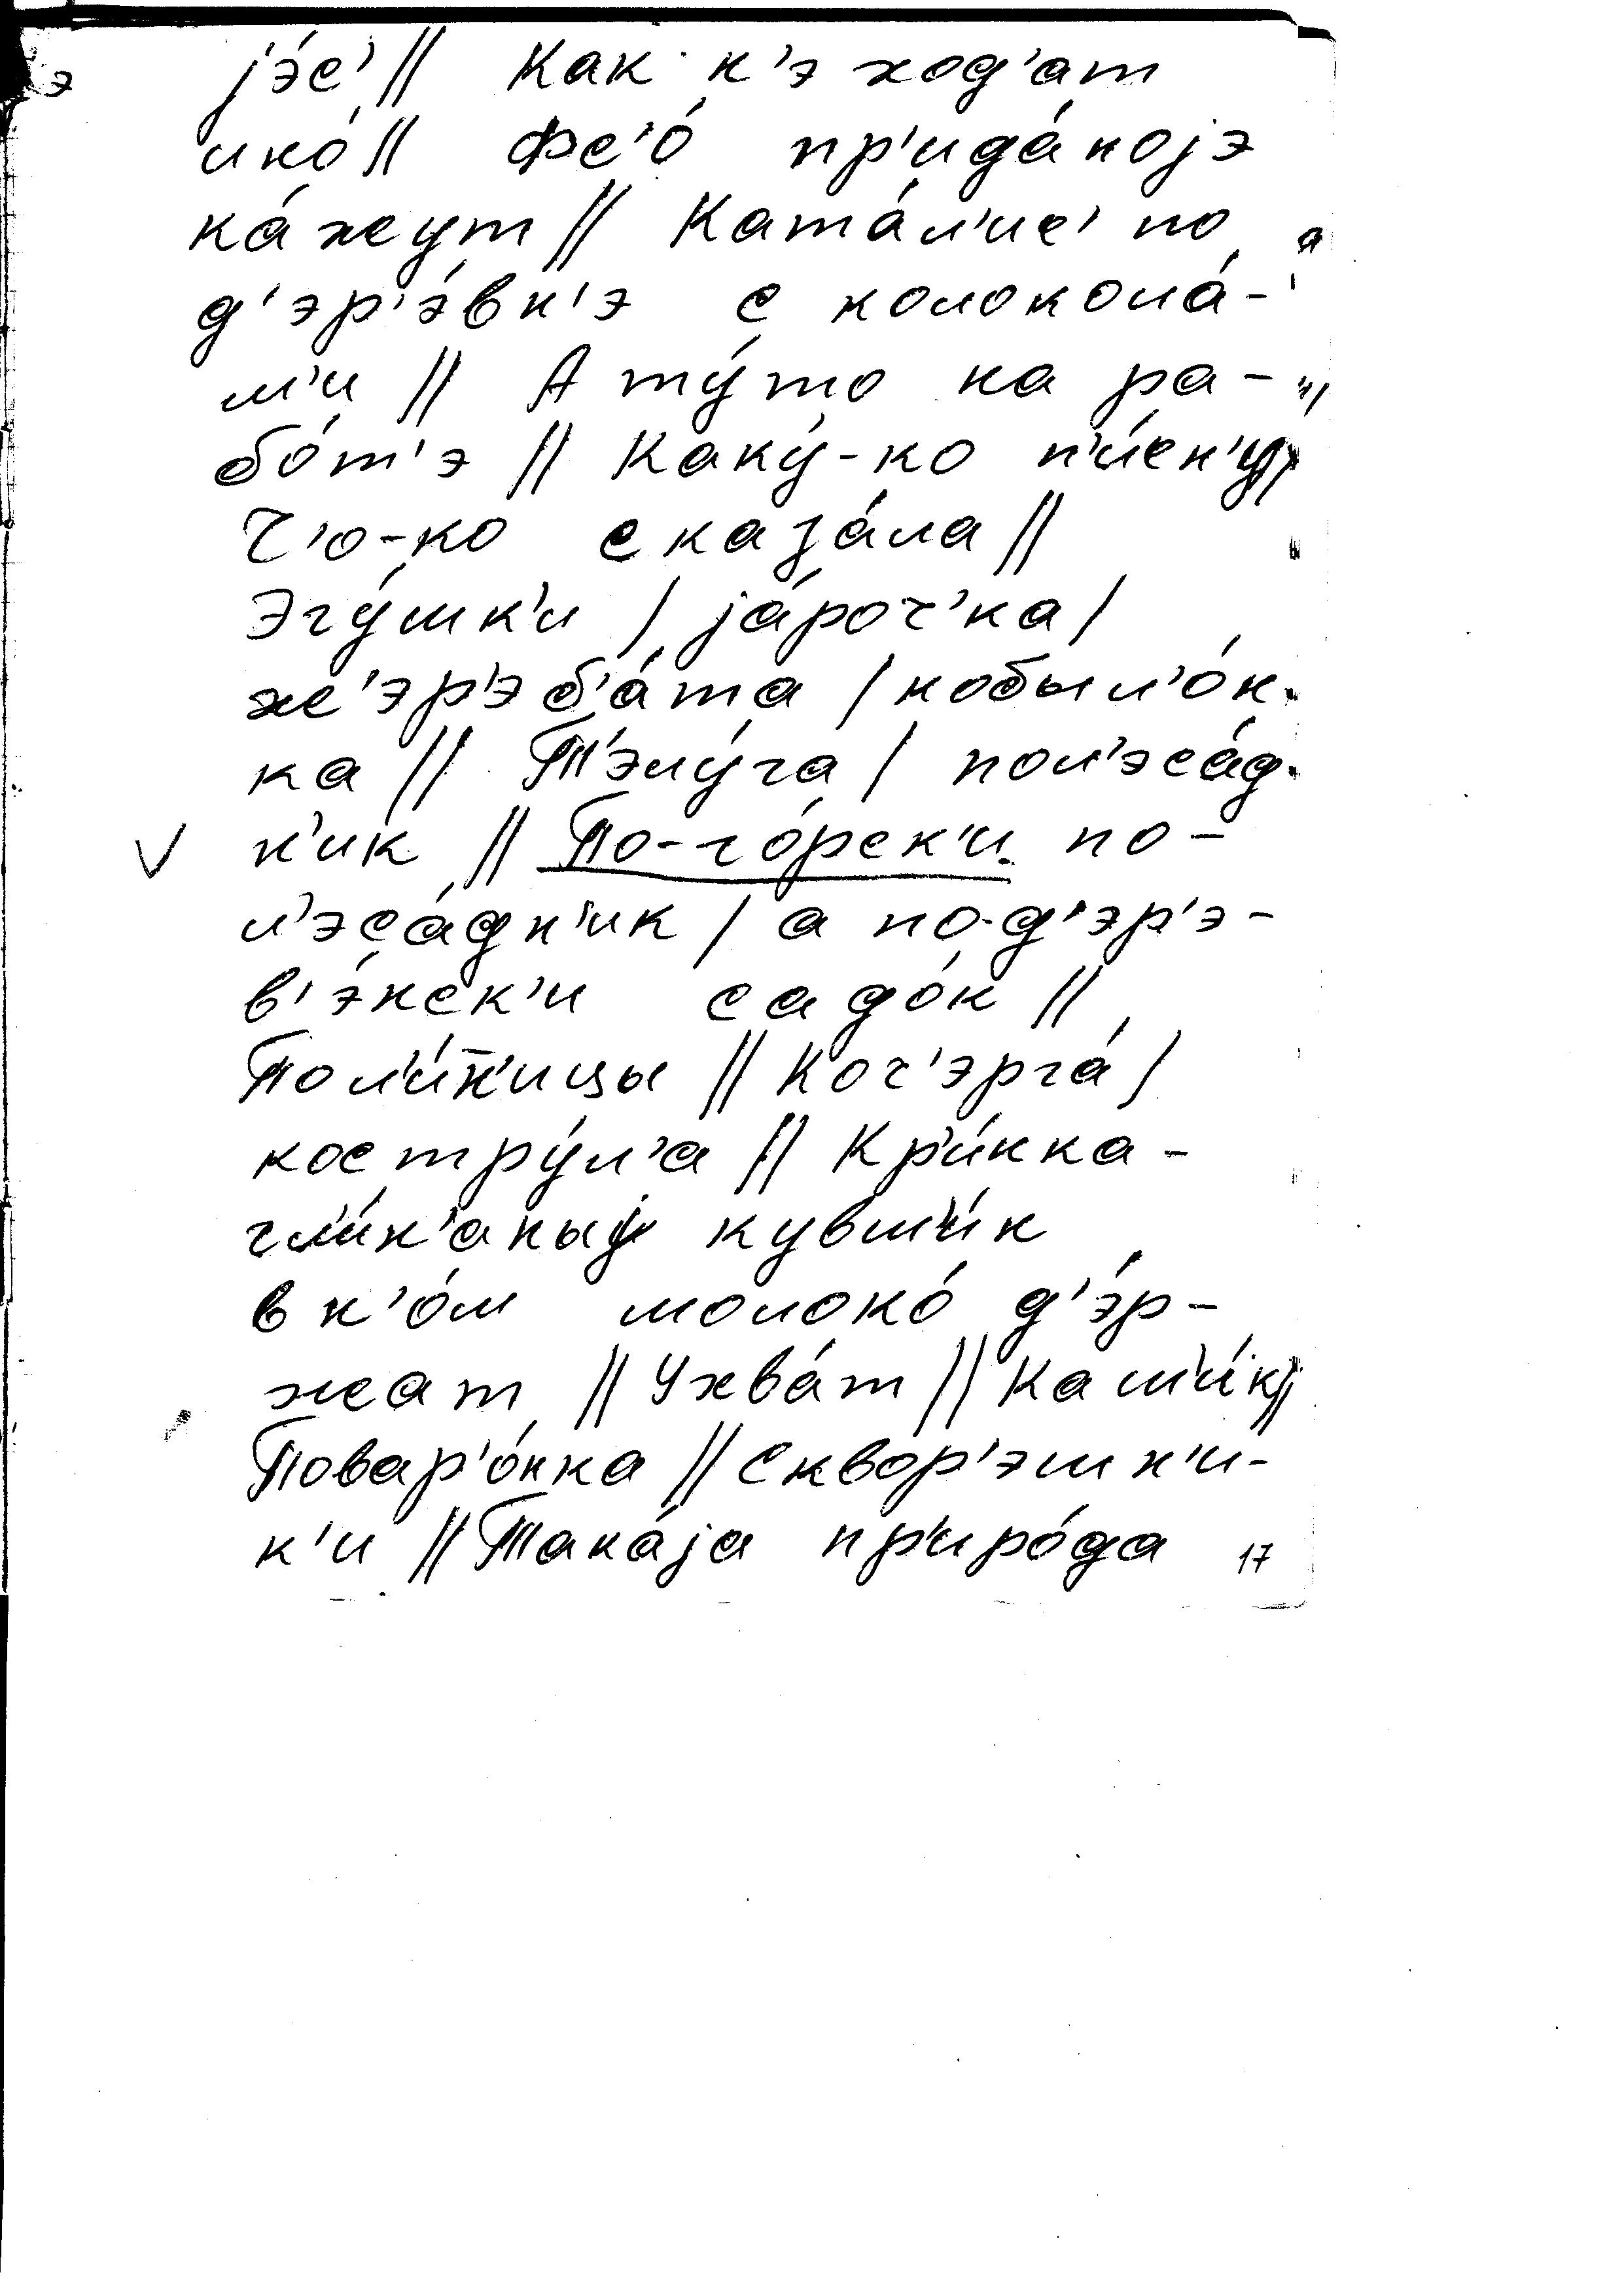 jэ́с' || Как н'э ход'ат
ино́ || Фс'о́ пр'ида́нојэ
ка́жут || Ката́л'ис' по
д'эр'э́вн'э с колокола́-
м'и || А ту́то на ра-
бо́т'э || Каку́-ко п'и́сн'у
Ч'о-ко сказа́ла ||
Эгу́шк'и / jа́роч'ка /
ж'эр'эб'а́та / кобыл'о́н-
ка || Т'элу́га / пол'эса́д-
н'ик || По-го́рск'и по-
л'эса́дн'ик / а по-д'эр'э-
в'э́нск'и садо́к ||
Пол'и́н'ицы || Коч'эрга́ /
костру́л'а || Кр'и́нка -
гл'и́н'аный кувш'и́н
в н'о́м молоко́ д'э́р-
жат || Ухва́т || Каш'и́к ||
Повар'о́нка || Сквор'эшн'и-
к'и || Така́jа пр'иро́да 17